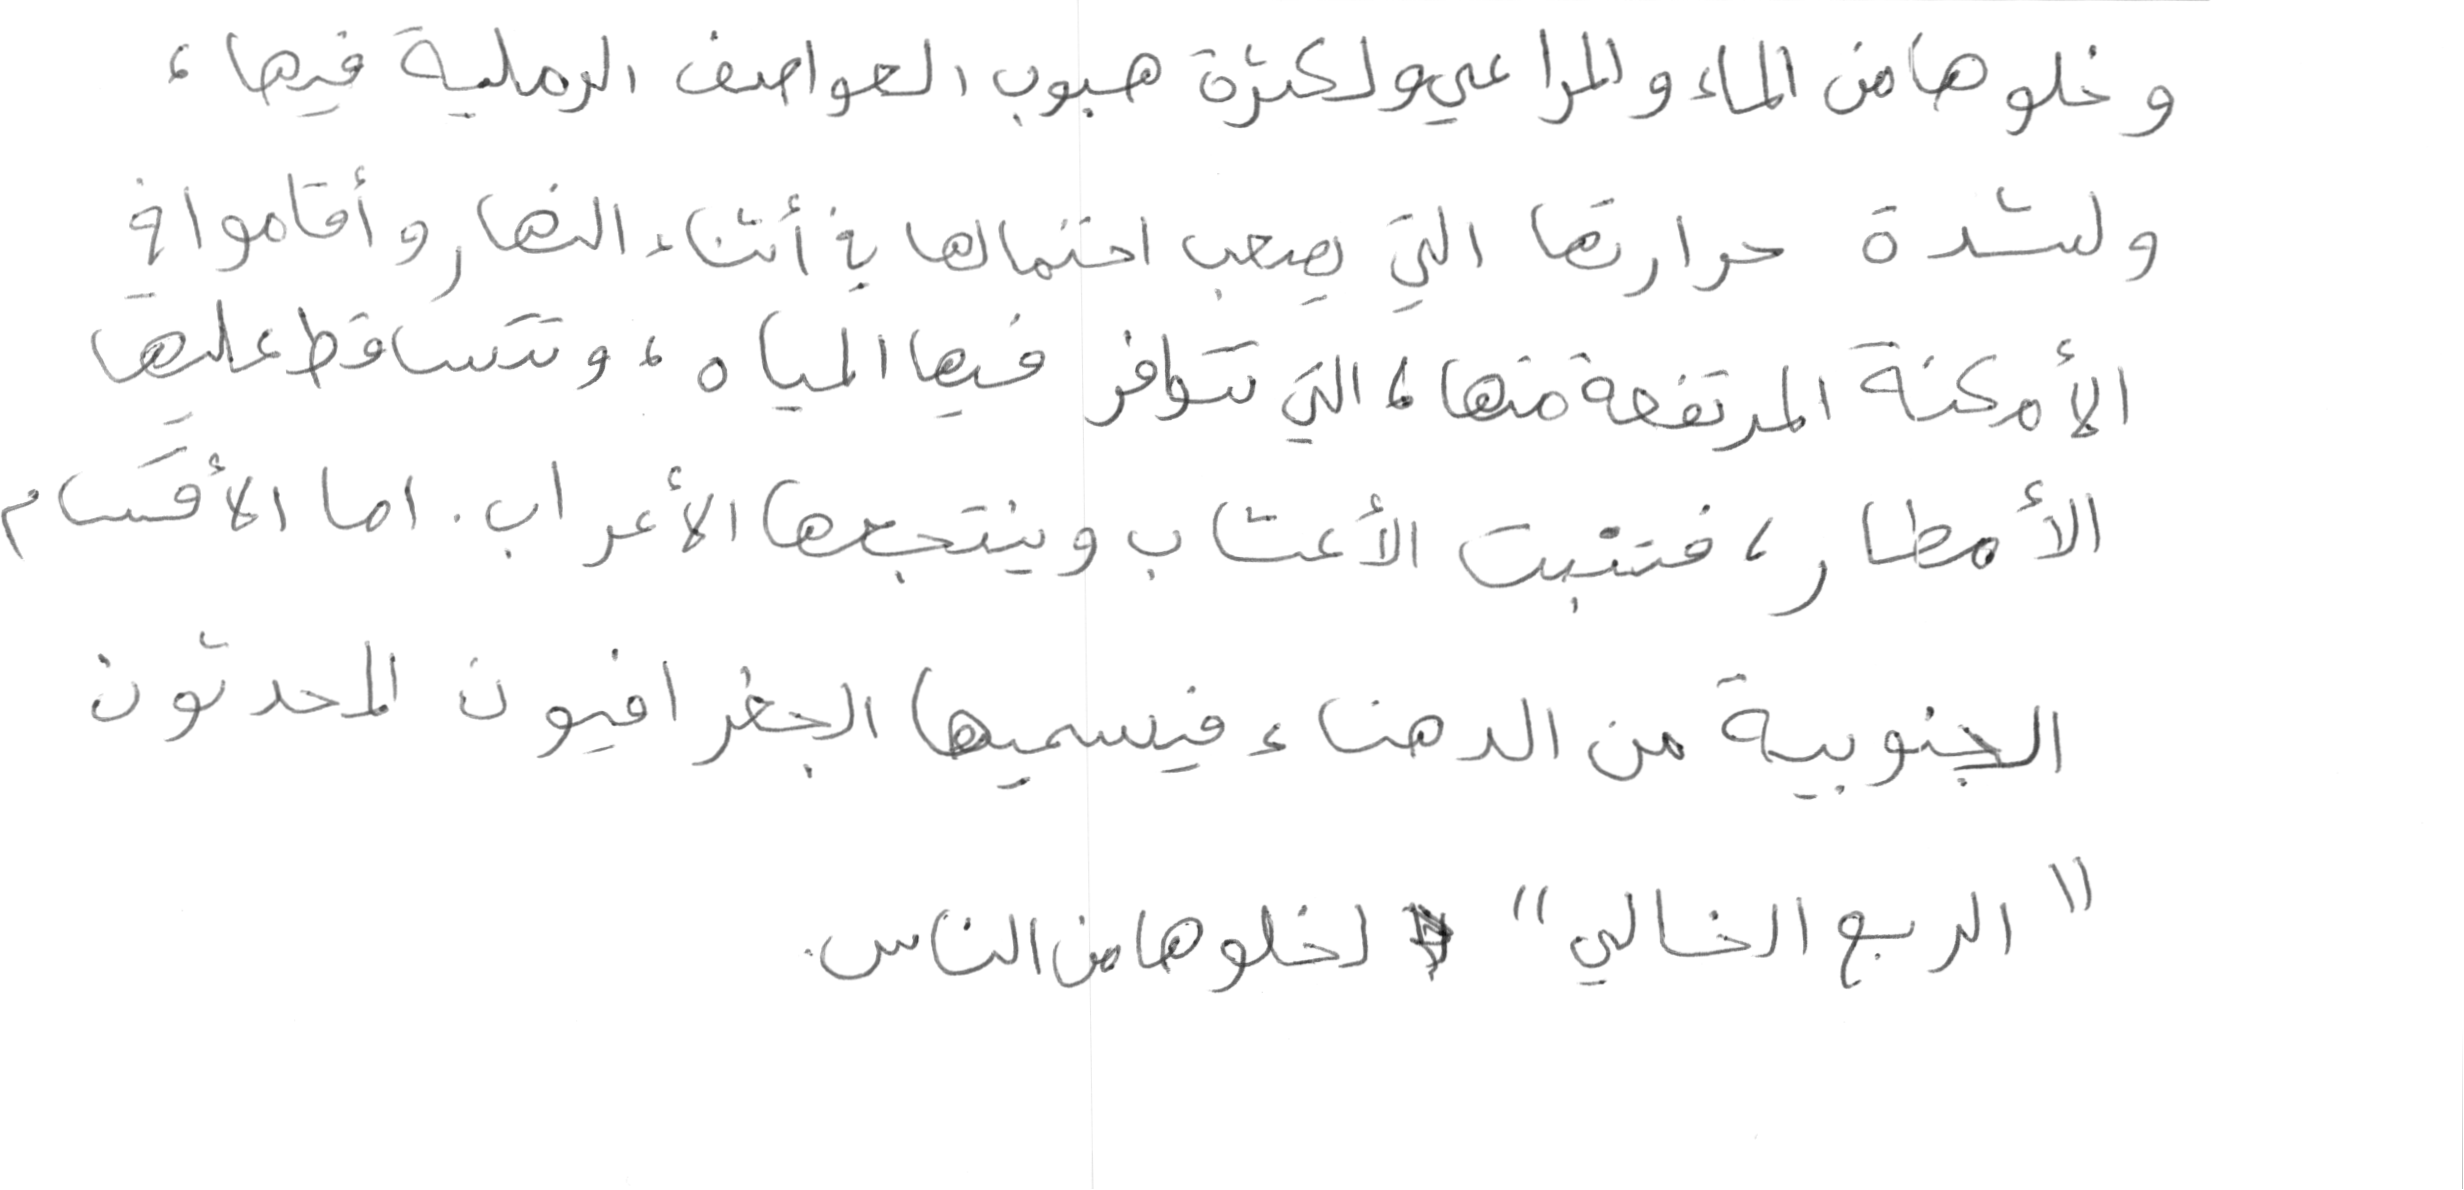 وخلوها من الماء والمراعي ولكثرة هبوب العواصف الرملية فيها ،
ولشدة حرارتها التي يصعب احتمالها في أثناء النهار وأقاموا في
الأمكنة المرتفعة منها ، التي تتوافر فيها المياه ، وتتساقط عليها
الأمطار ، فتنبت الأعشاب وينتجعها الأعراب . اما الأقسام
الجنوبية من الدهناء فيسميها الجغرافيون المحدثون
" الربع الخالي " لخلوها من الناس .